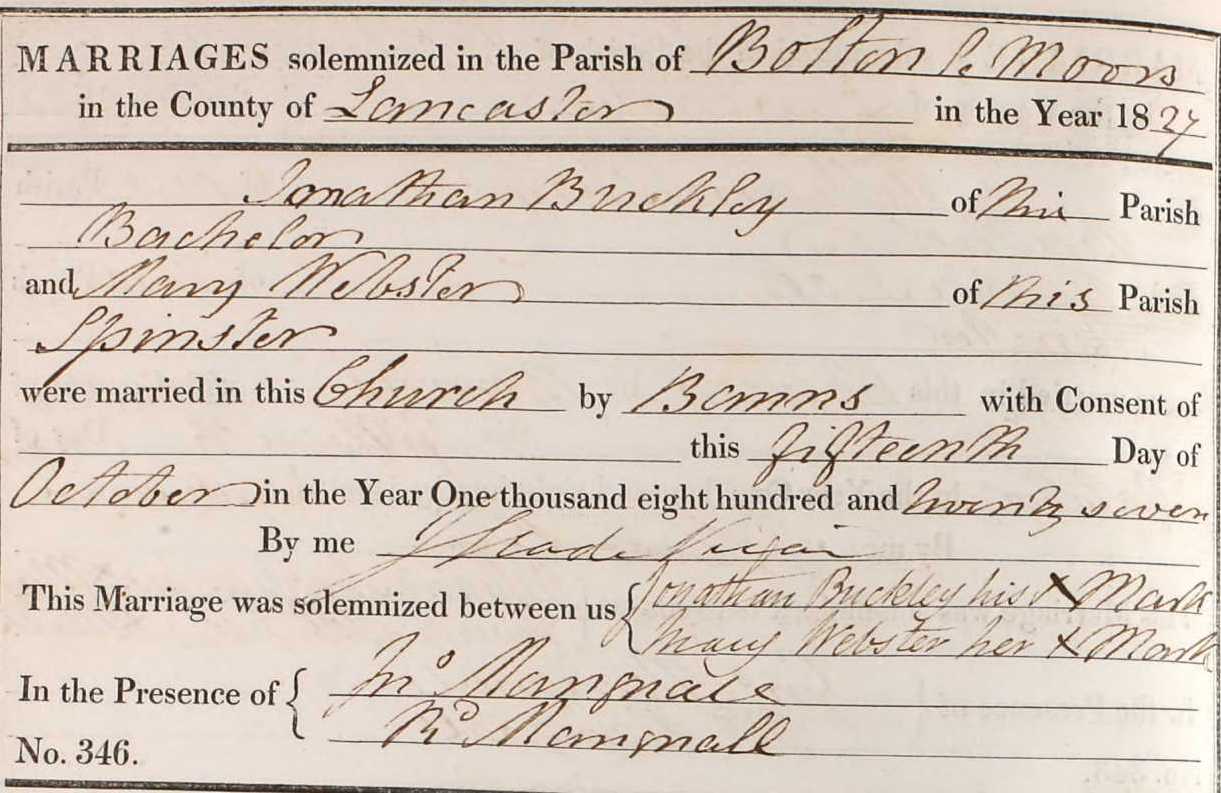 MARRIAGES solemnized in the Parish of Bolton le Moors
in the County of Lancaster in the Year 1827
Jonathan Buckley of this Parish
Bachelor
and Mary Webster of this Parish
Spinster
were married in this Church by Banns with Consent of
this fifteenth Day of
October in the Year One thousand eight hundred and twenty seven
By me J Slade Vicar
This Marriage was solemnized between us { Jonathan Buckley his X Mark
Mary Webster her X Mark
In the Presence of { Jno Mangnall
Rd Mangnall
No. 346.